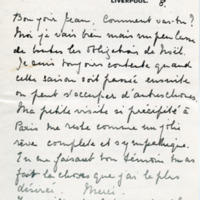 LIVERPOOL. 8.
Bonjour Jean, Comment vas-tu?
Moi je vais bien mais un peu lasse
de toutes les obligations de Noël.
Je suis toujours contente quand
cette saison soit passée ensuite
on peut s'occuper d'autres choses.
Ma petite visite si précipité à
Paris me reste comme un joli
rêve complete et sympathique.
En me faisant bon témoin tu as
fait la chose que j'ai le plus
désiré. Merci.